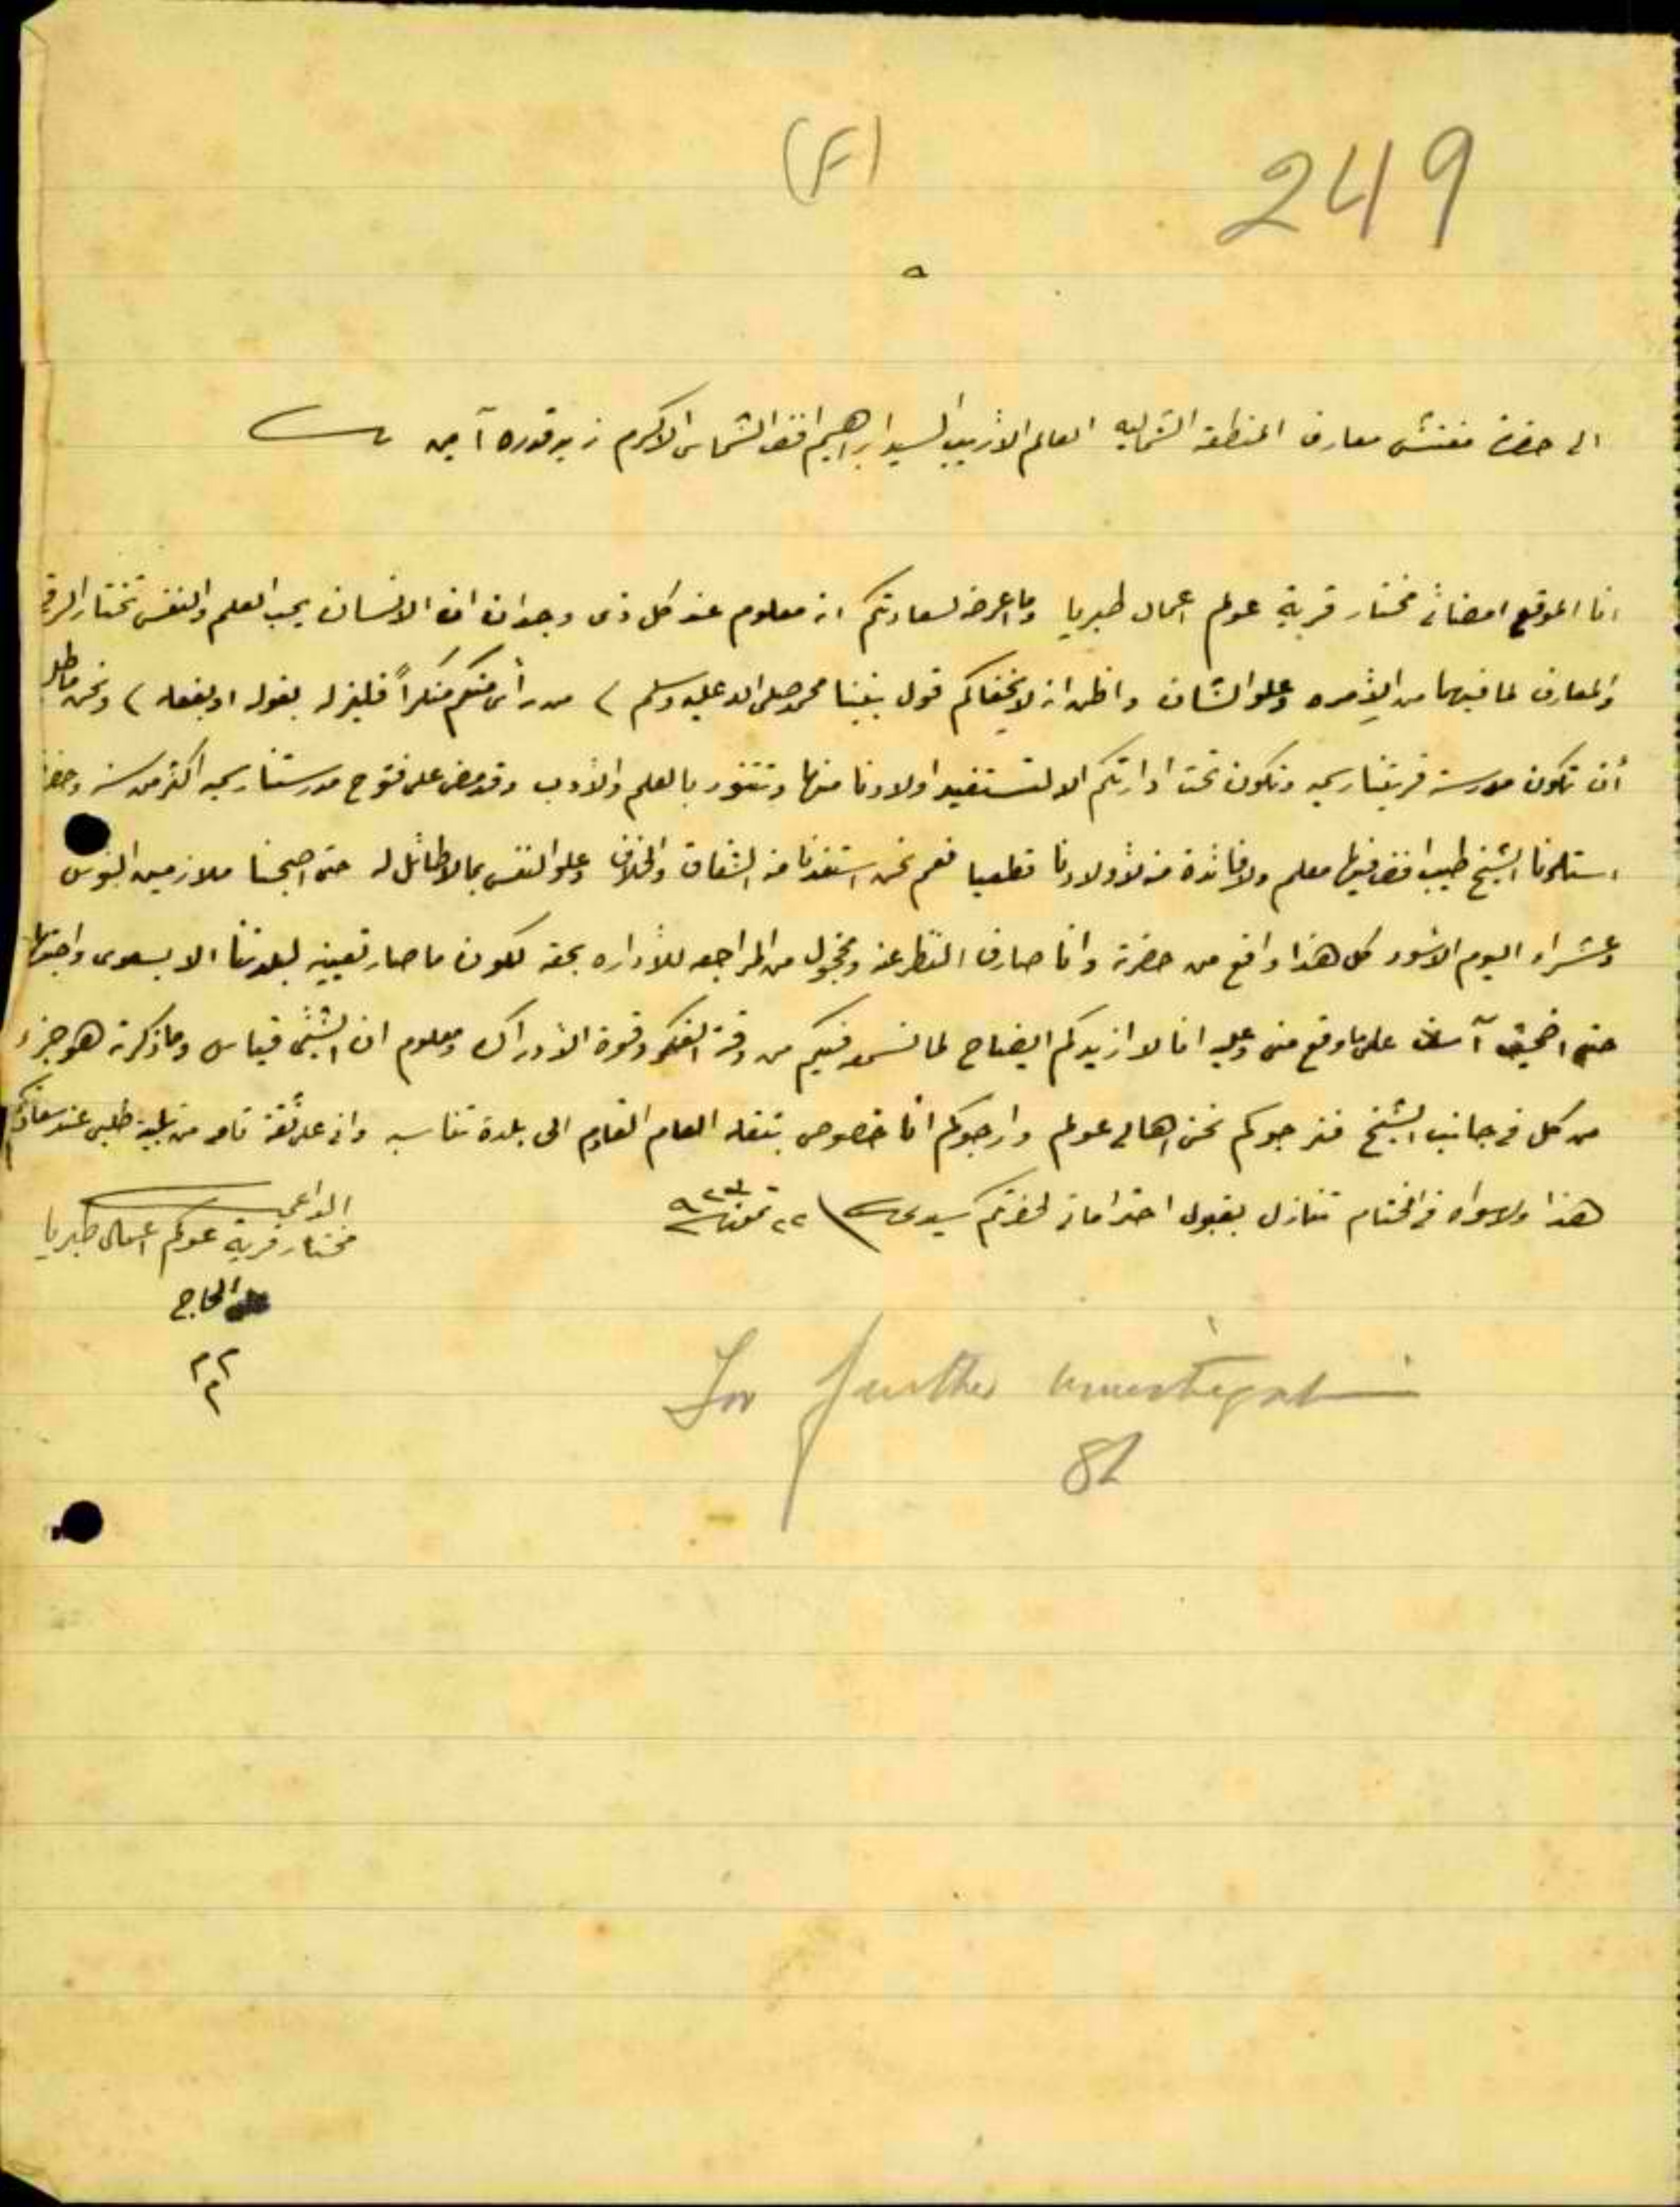 (F)
249
الى حضرة مفتش معارف المنطقة الشماليه العالم الأديب السيد ابراهيم افندي الشماس الاكرم زيد قدره آمين
انا الموقع امضائي مختار قرية عولم اعمال طبريا وما اعرضه لسعادتكم انه معلوم عند كل ذي وجدان ان الانسان يحب العلم والنفس تختار الرقي
والمعارف لما فيهما من الثمره وعلو الشان واظن انه لا يخفاكم قول نبينا محمد صلى الله عليه وسلم ( من رأى منكم منكراً فليزله بقوله او بفعله ) ونحن ما طلبنا
أن تكون مدرسة قريتنا رسميه وتكون تحت ادارتكم الا لتستفيد اولادنا منها وتتنور بالعلم والأدب وقد مضى على فتوح مدرستنا رسميه اكثر من سنه وحضرة
استاذنا الشيخ طيب افندي فيها معلم ولا فائدة منه لأولادنا قطعيا نعم نحن استفدنا منه الشقاق والخلاف وعلو النفس بما لا طائل له حتى اصبحنا ملازمين البؤس
وعشراء اليوم الاسود كل هذا واقع من حضرته وانا صارف النظر عنه ومخجول من المراجعه للأداره بحقه لكون ما صار تعيينه لبلدتنا الا بسعوى واجتهادي
حتى اضحيت آسف على ما وقع مني وعليه انا لا ازيدكم ايضاح لما نسمعه فيكم من دقة الفكر وقوة الأدراك ومعلوم ان الشيئ قياس وما ذكرته هو جزء
من كل في جانب الشيخ فنرجوكم نحن اهالي عولم وارجوكم انا خصوصي بنقله العام القادم الى بلدة تناسبه واني على ثقة تامه من تلبية طلبي عند سعادتكم
هذا ولا سواه في الختام تنازل بقبول احتراماتي لحضرتكم سيدي ٢٢ تموز سنة ٩٢٣
الداعي
مختار قرية عولم اعمال طبريا
الحاج
For further investigation